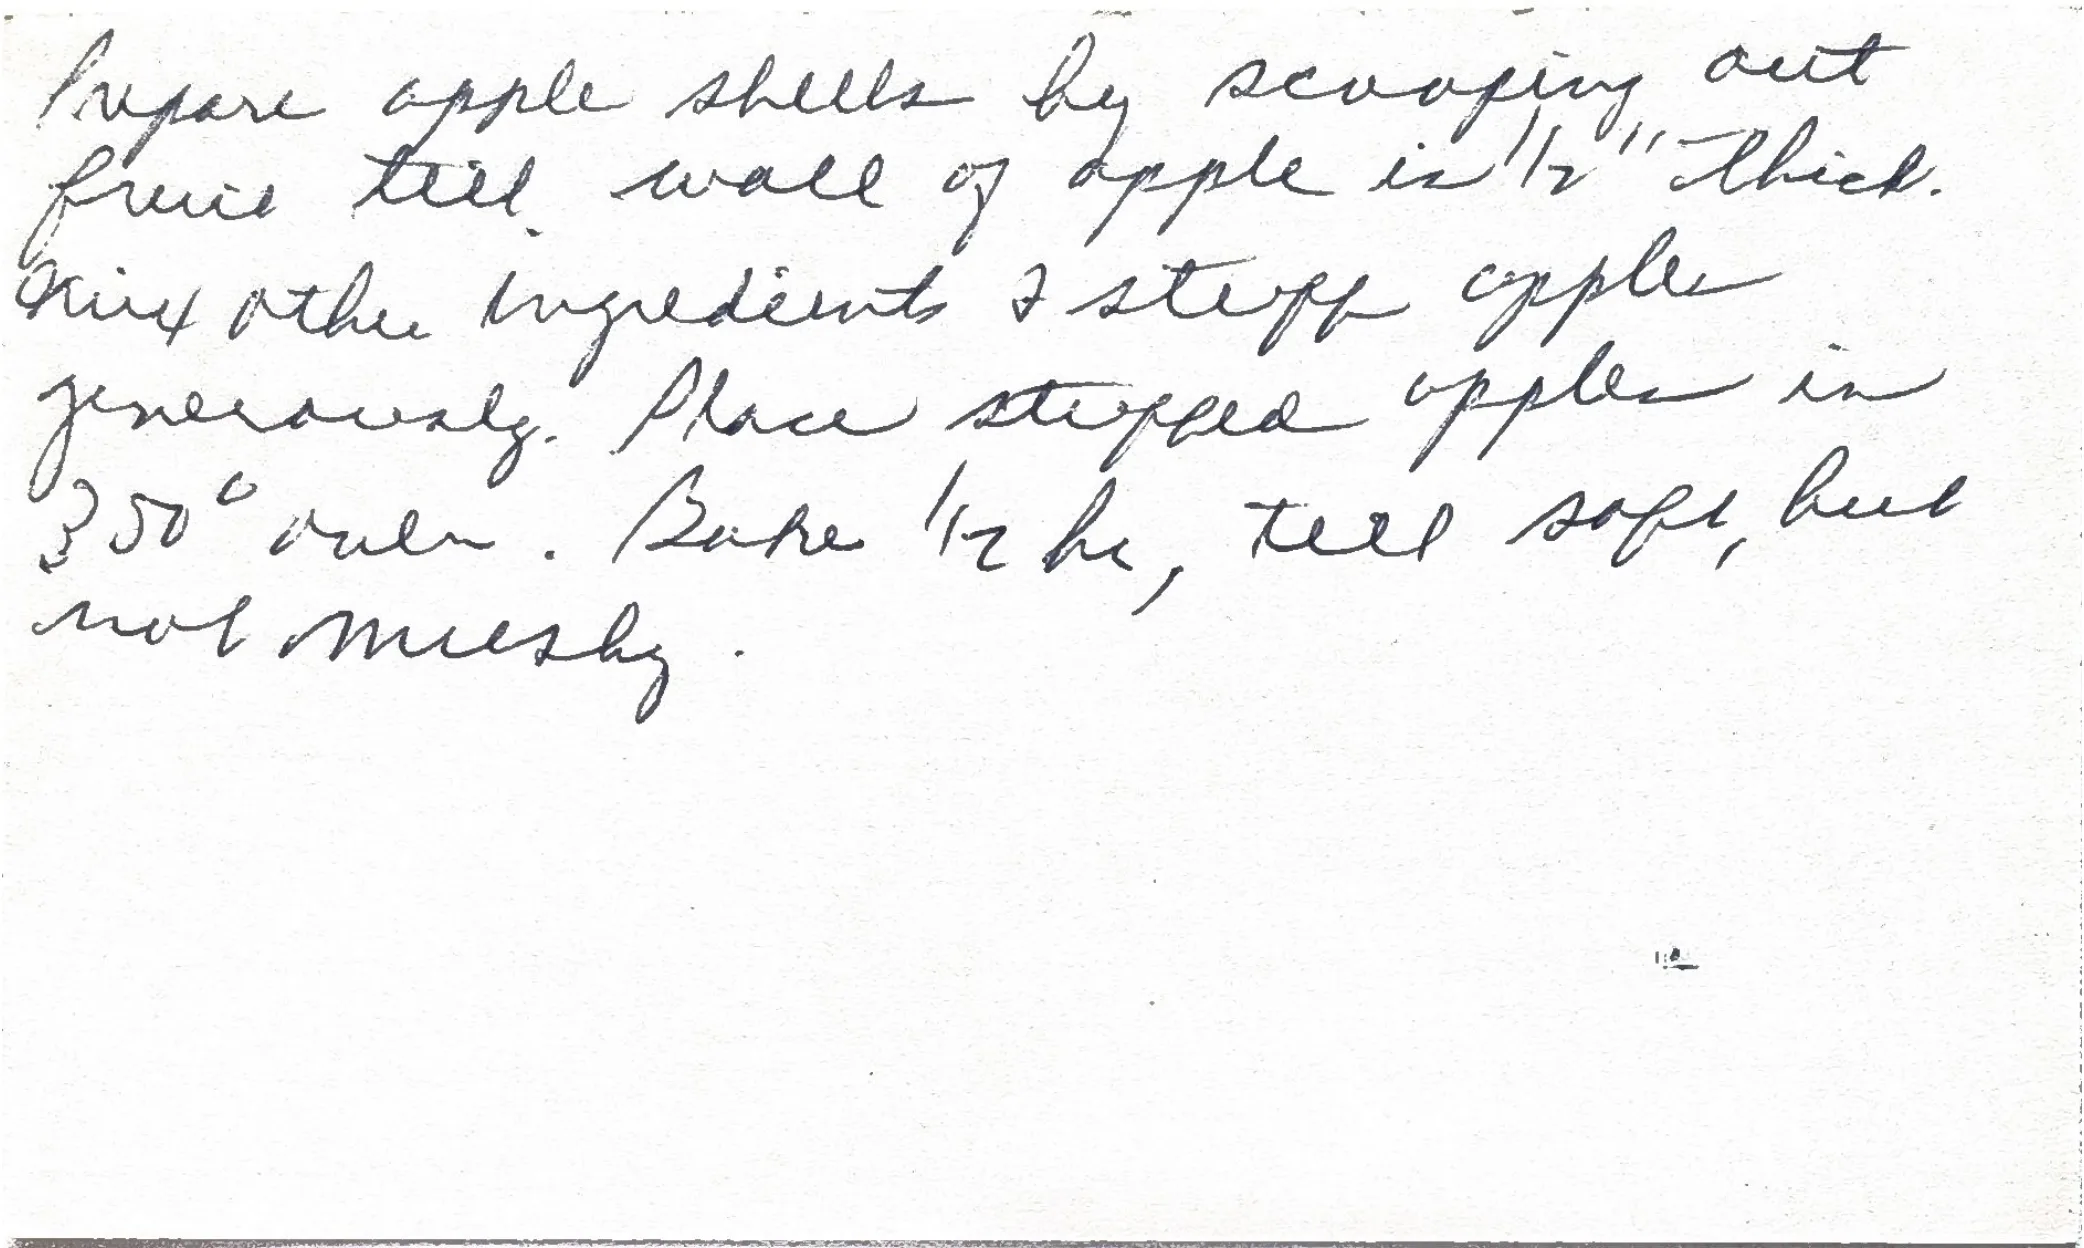 Prepare apple shells by scooping out
fruit till wall of apple is 1/2" thick.
Mix other ingredients & stuff apples
generously. Place stuffed apples in
350° oven. Bake 1/2 hr, till soft, but
not mushy.